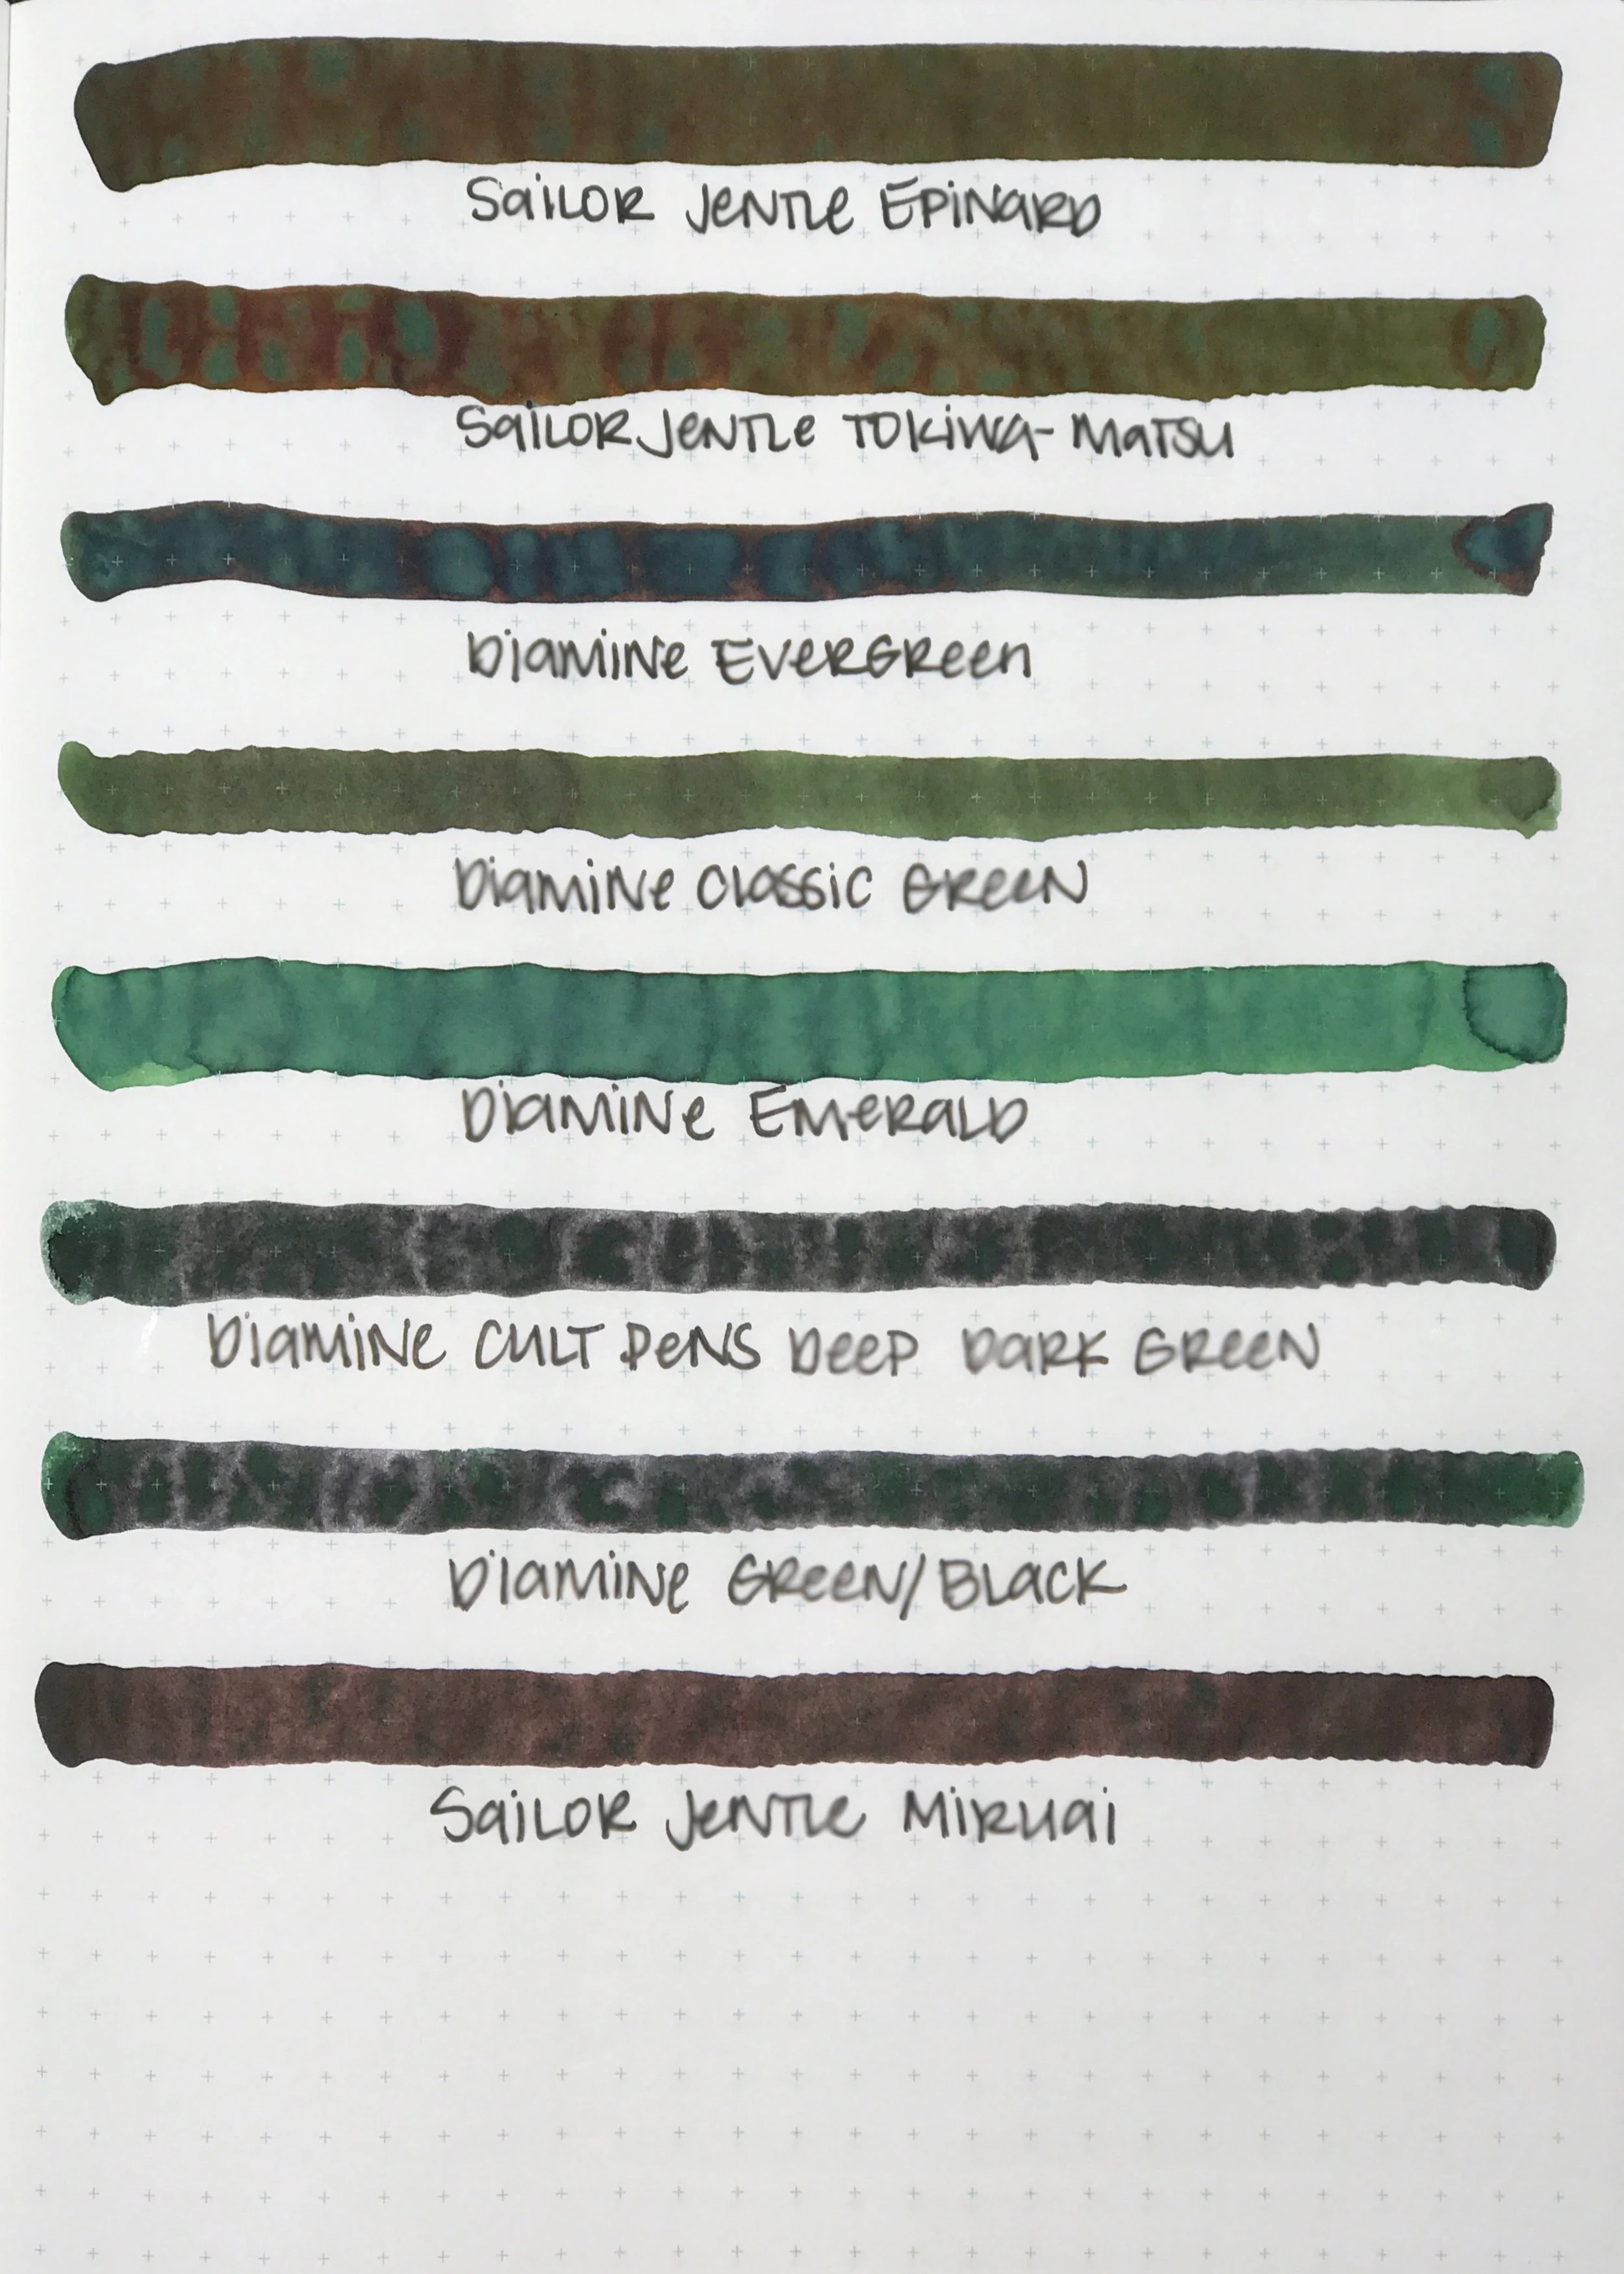 Sailor Jentle Epinard
Sailor Jentle Tokiwa-Matsu
Diamine Evergreen
Diamine Classic Green
Diamine Emerald
Diamine Cult Pens Deep Dark Green
Diamine Green/Black
Sailor Jentle Miruai